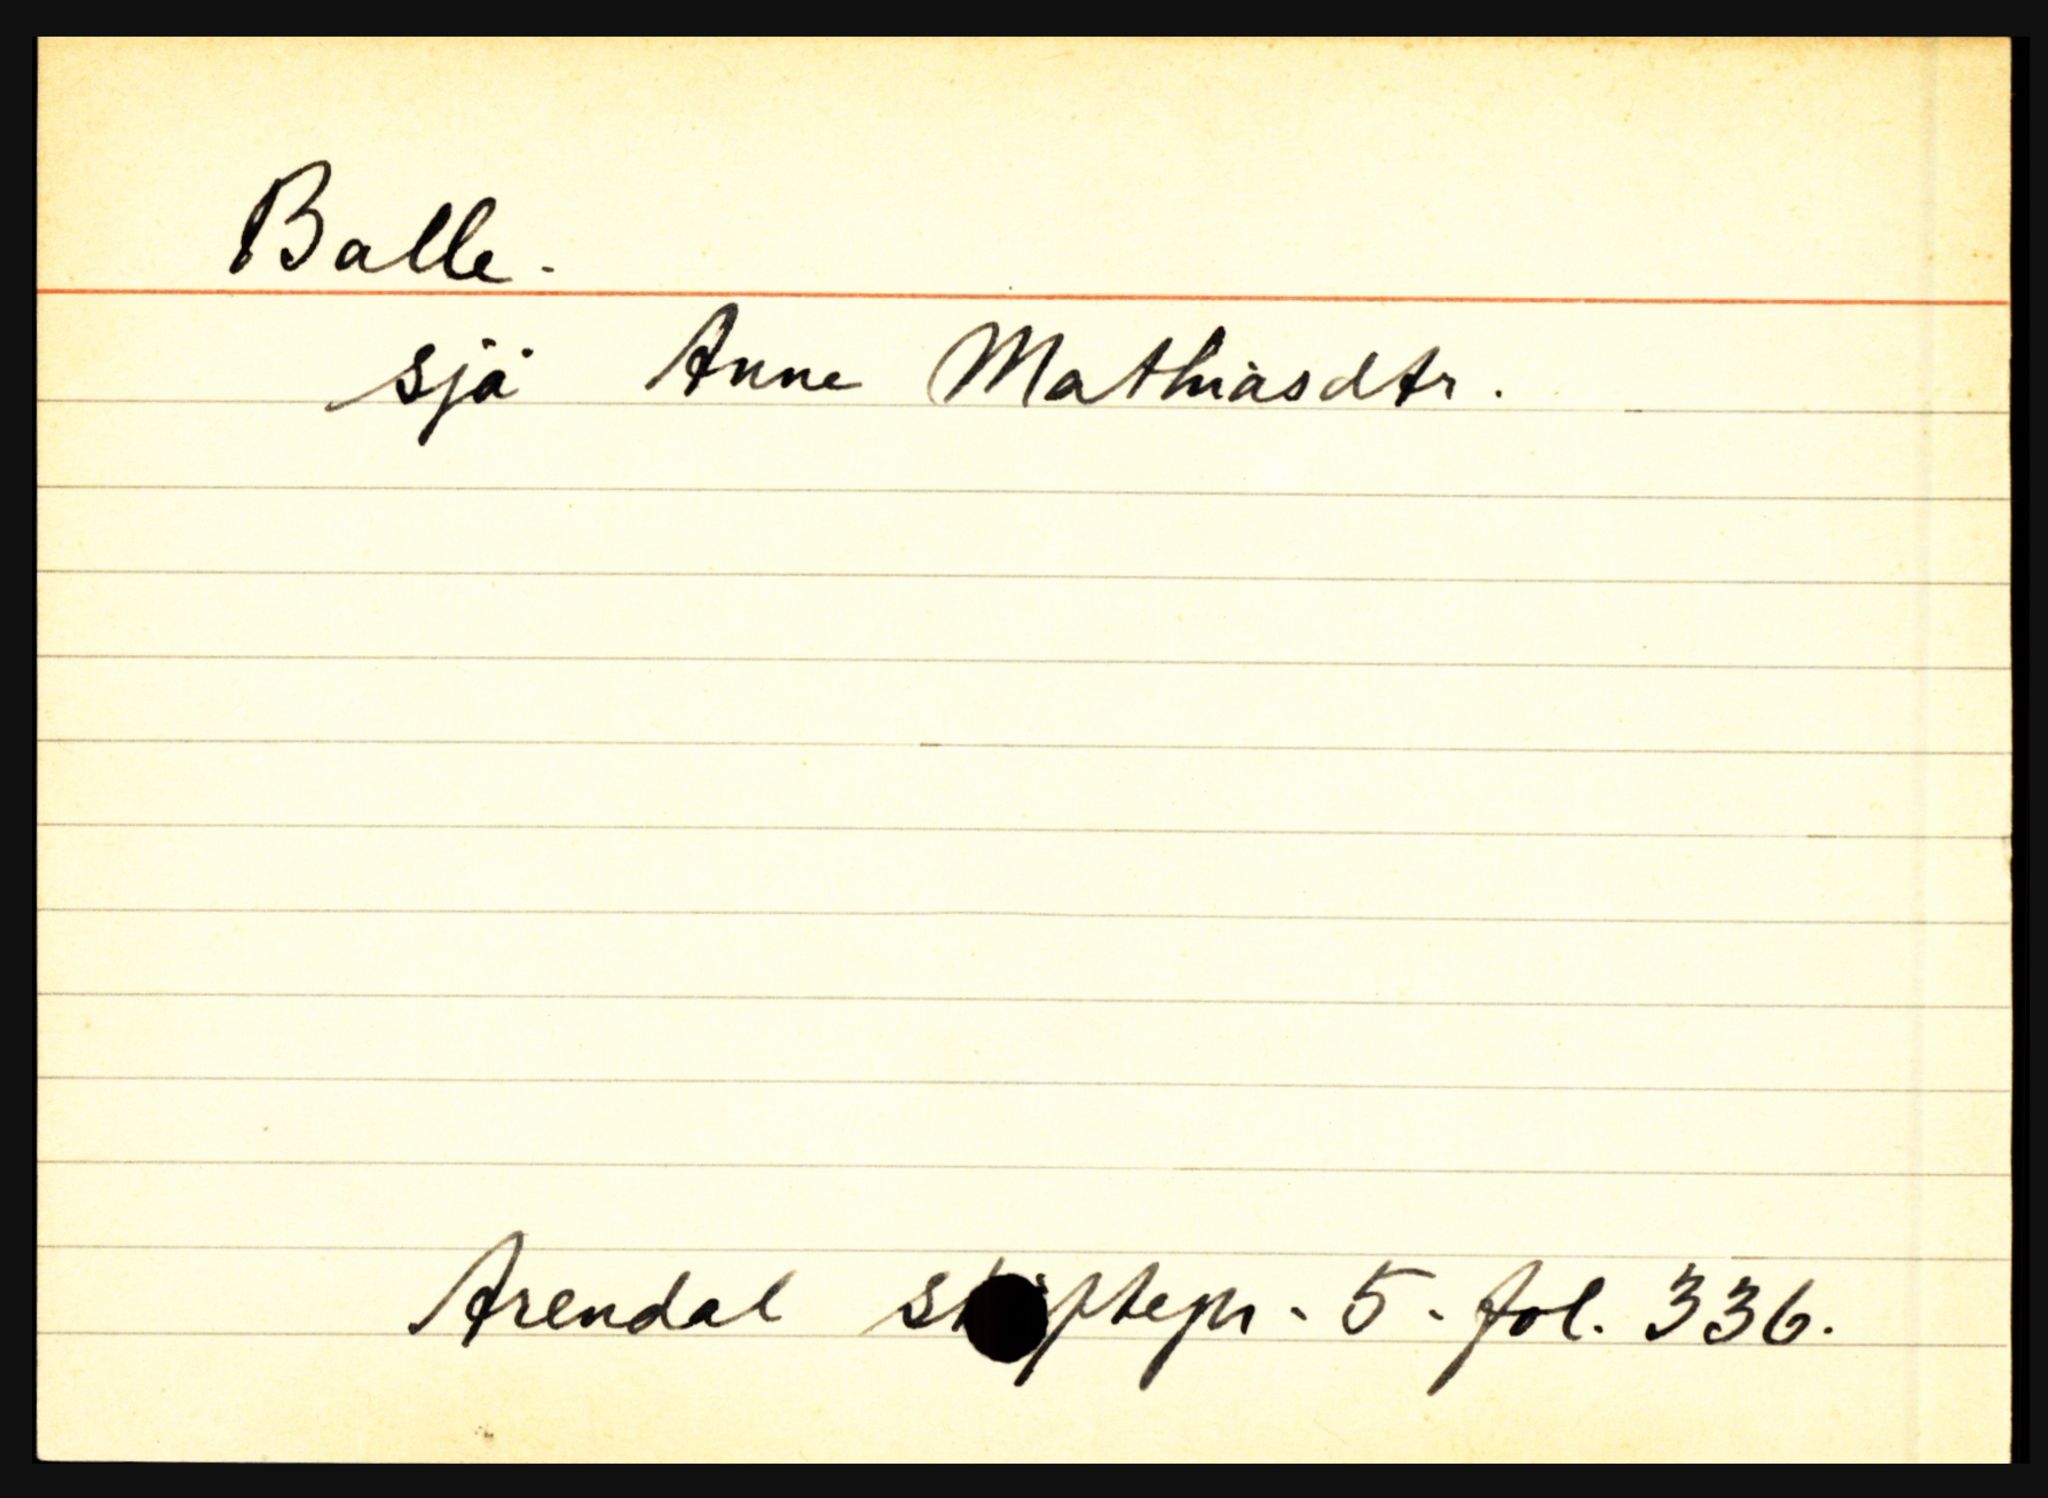 Balle.
sjå Anne Mathiasdtr.
Arendal skiftepr. 5. fol. 336.